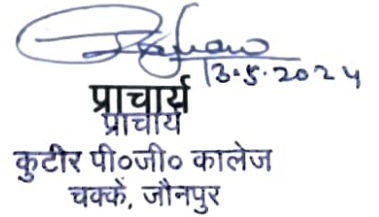 13.5.2024
प्राचार्य
प्राचार्य
कुटीर पी०जी० कालेज
चक्के, जौनपुर